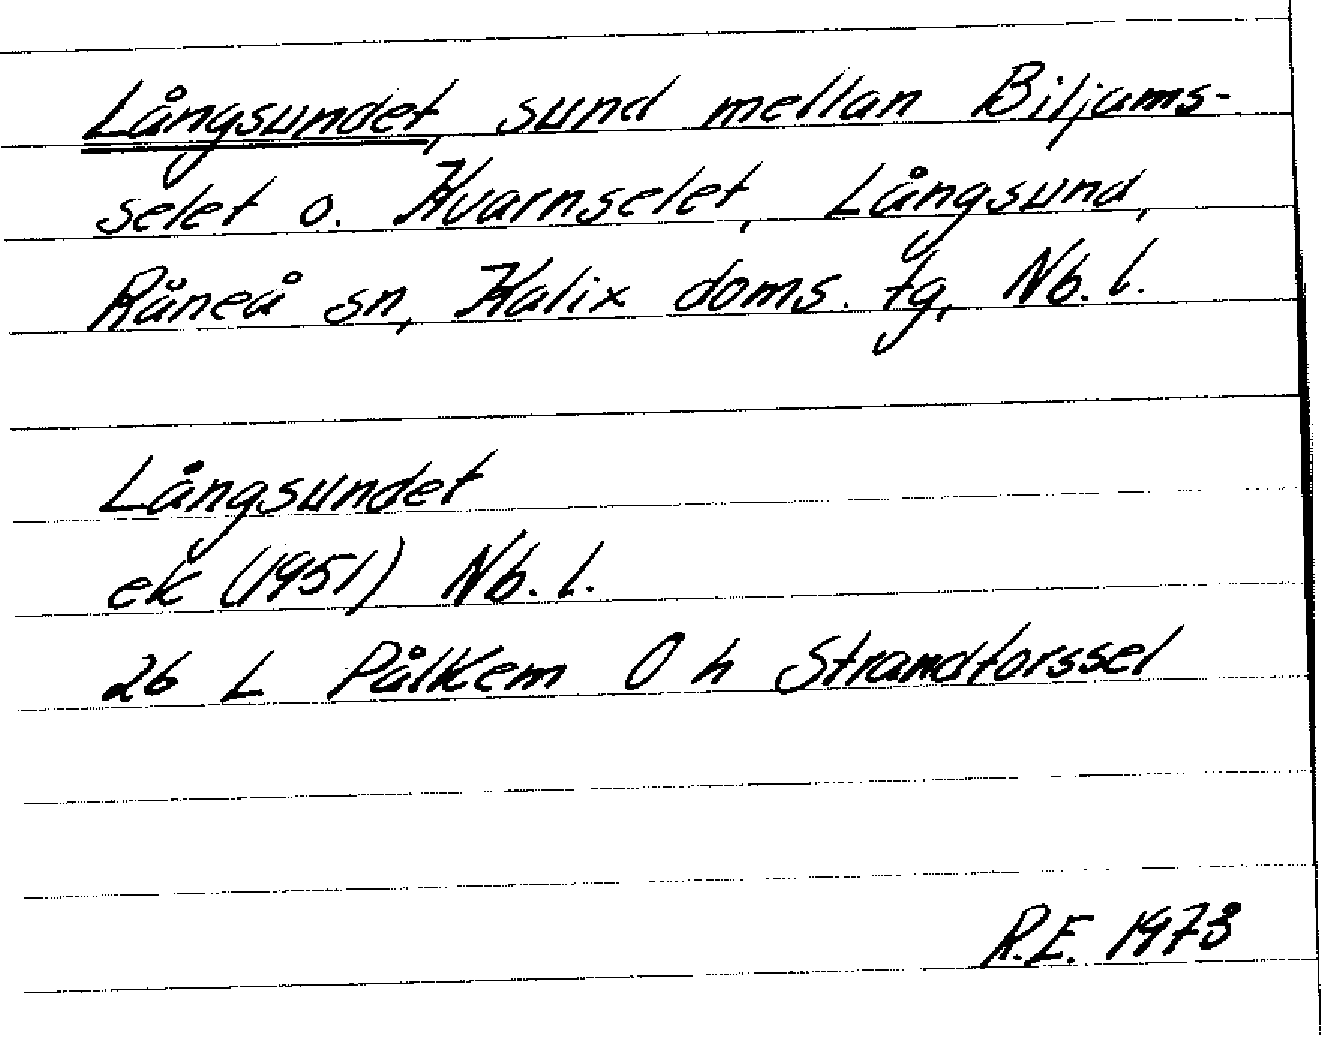 Långsundet, sund mellan Biljums-
selet o. Kvarnselet, Långsund,
Råneå sn, Kalix doms. tg, Nb. l.
Långsundet
ek (1951) Nb. l.
26 L Pålkem O h Strandforssel
R.E. 1973